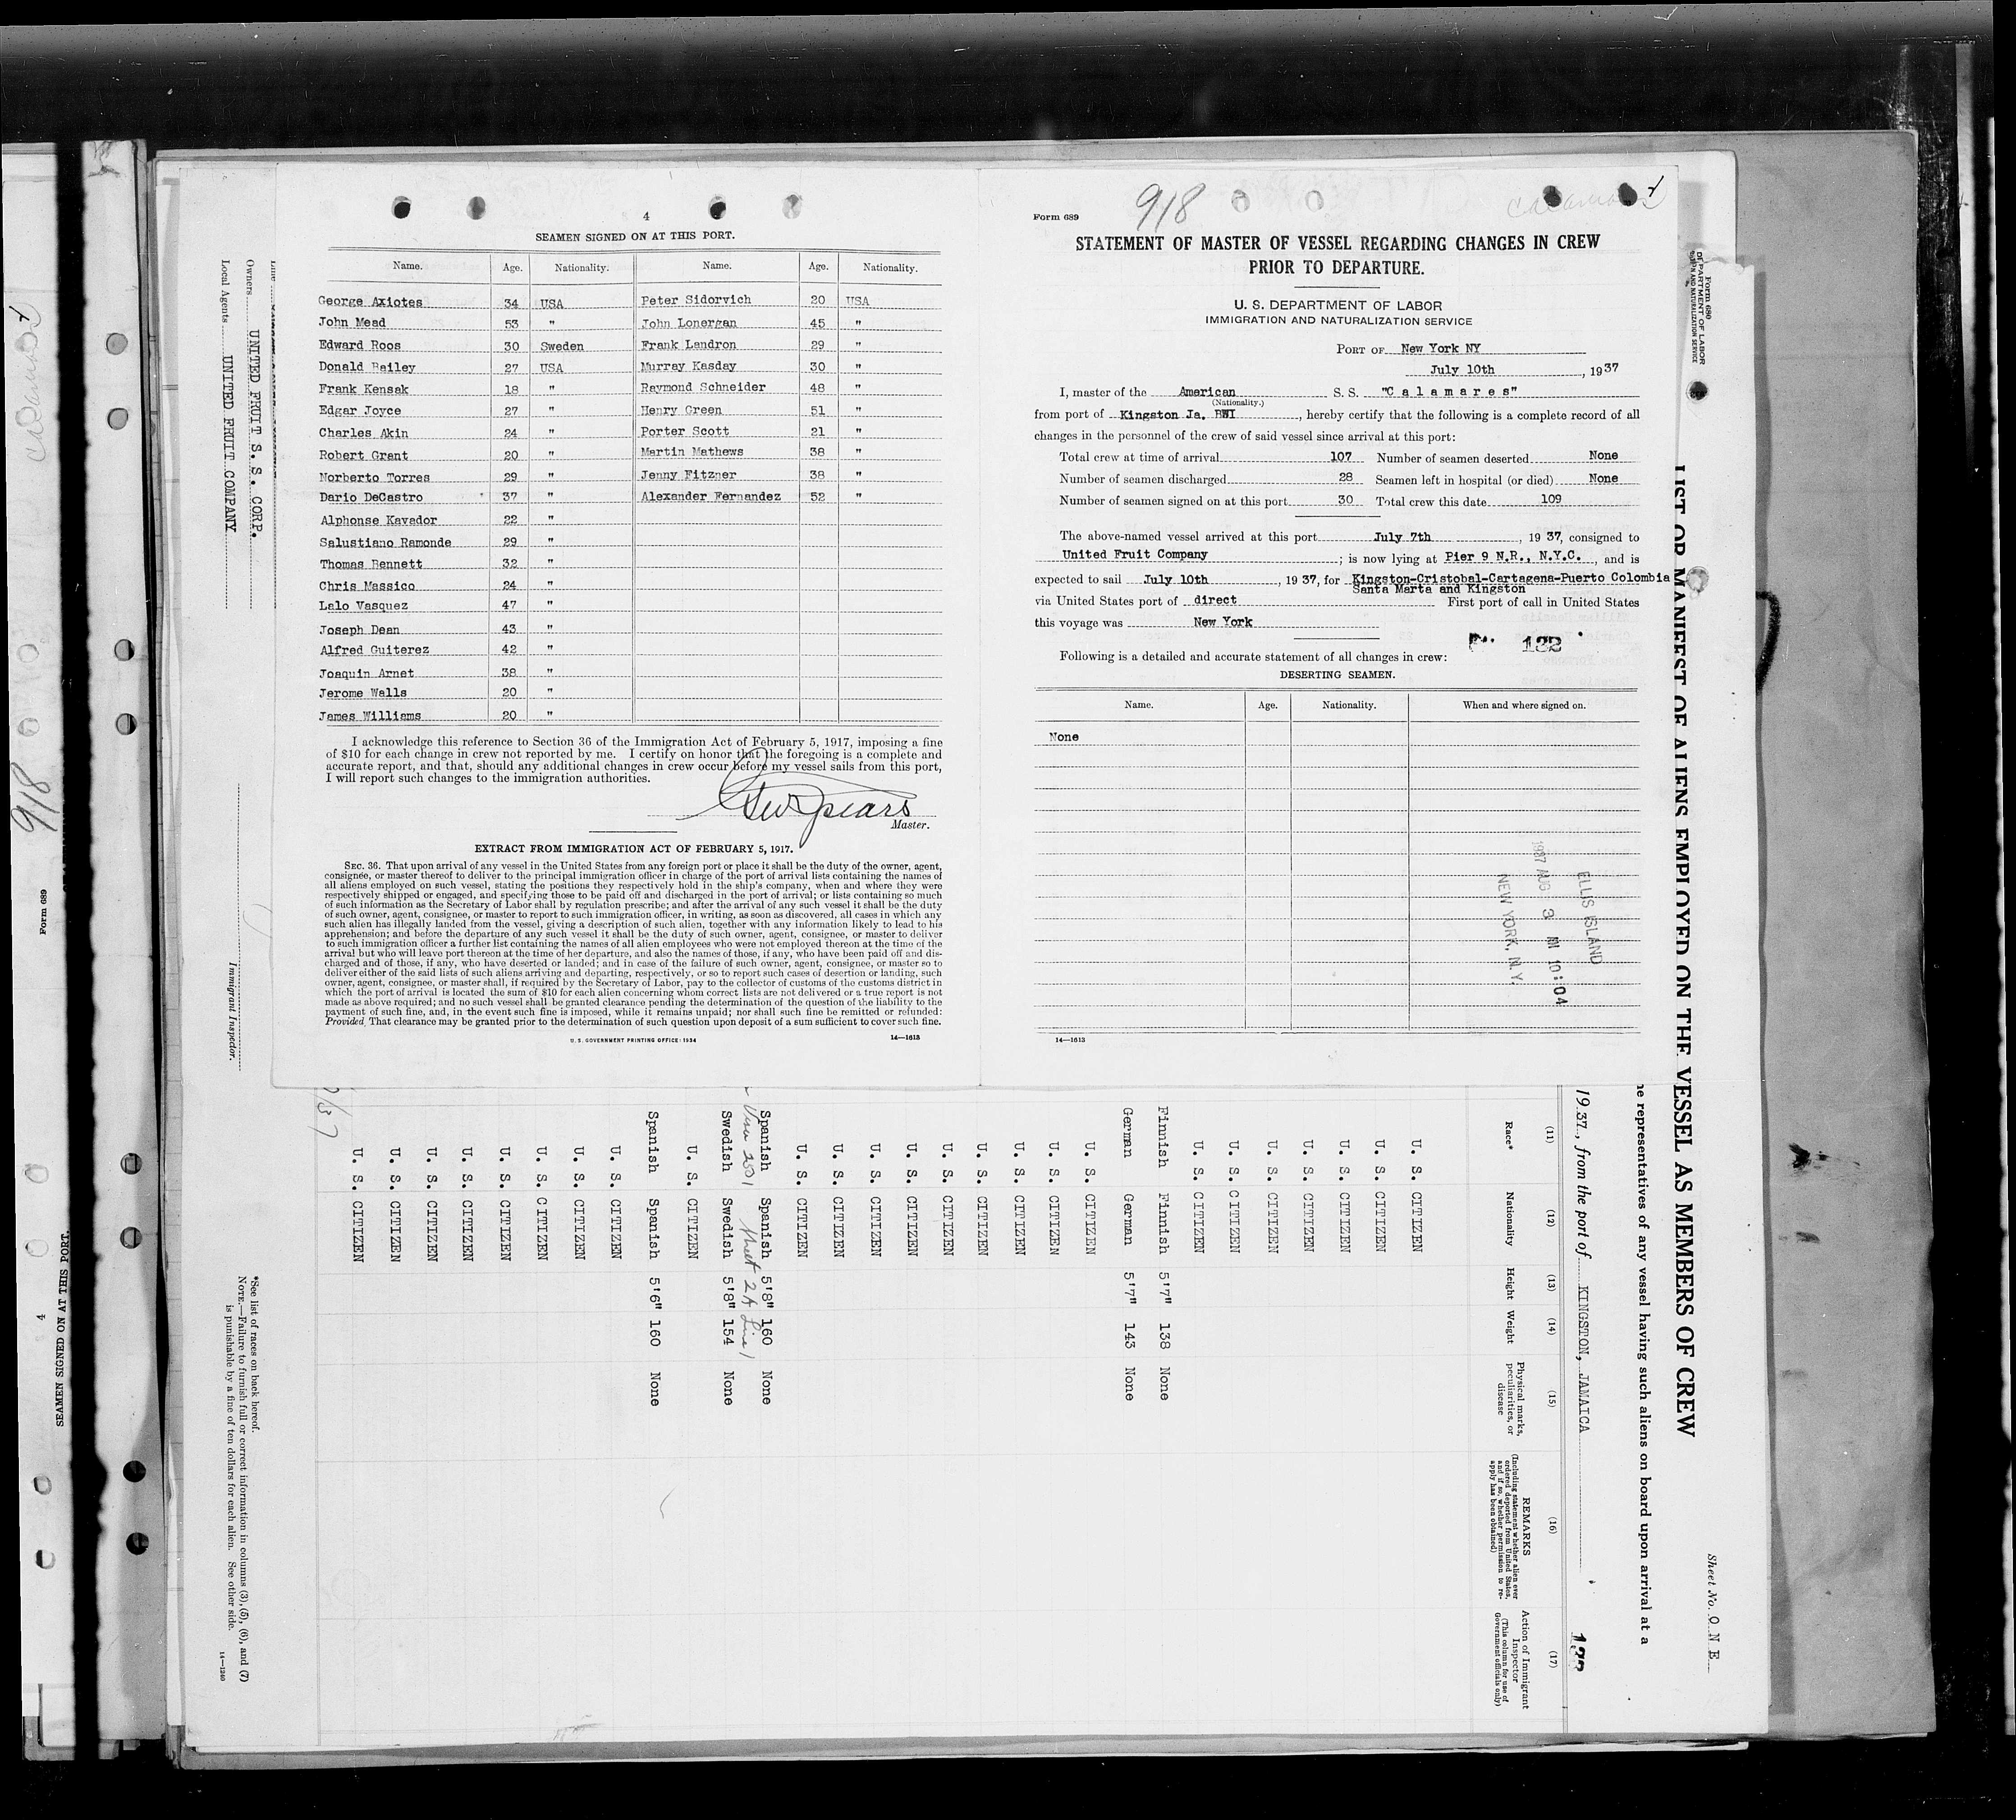 4
SEAMEN SIGNED ON AT THIS PORT.
Name. Age. Nationality. Name. Age. Nationality.
George Axiotes 34 USA Peter Sidorvich 20 USA
John Mead 53 " John Lonergan 45 "
Edward Roos 30 Sweden Frank Landron 29 "
Donald Bailey 27 USA Murray Kasday 30 "
Frank Kensak 18 " Raymond Schneider 48 "
Edgar Joyce 27 " Henry Green 51 "
Charles Akin 24 " Porter Scott 21 "
Robert Grant 20 " Martin Mathews 38 "
Norberto Torres 29 " Jenny Fitzner 38 "
Dario DeCastro 37 " Alexander Fernandez 52 "
Alphonse Kavador 22 "
Salustiano Ramonde 29 "
Thomas Bennett 32 "
Chris Massico 24 "
Lalo Vasquez 47 "
Joseph Dean 43 "
Alfred Guiterez 42 "
Joaquin Arnet 38 "
Jerome Walls 20 "
James Williams 20 "
I acknowledge this reference to Section 36 of the Immigration Act of February 5, 1917, imposing a fine
of $10 for each change in crew not reported by me. I certify on honor that the foregoing is a complete and
accurate report, and that, should any additional changes in crew occur before my vessel sails from this port,
I will report such changes to the immigration authorities.
Spears
Master.
EXTRACT FROM IMMIGRATION ACT OF FEBRUARY 5, 1917.
SEC. 36. That upon arrival of any vessel in the United States from any foreign port or place it shall be the duty of the owner, agent,
consignee, or master thereof to deliver to the principal immigration officer in charge of the port of arrival lists containing the names of
all aliens employed on such vessel, stating the positions they respectively hold in the ship's company, when and where they were
respectively shipped or engaged, and specifying those to be paid off and discharged in the port of arrival; or lists containing so much
of such information as the Secretary of Labor shall by regulation prescribe; and after the arrival of any such vessel it shall be the duty
of such owner, agent, consignee, or master to report to such immigration officer, in writing, as soon as discovered, all cases in which any
such alien has illegally landed from the vessel, giving a description of such alien, together with any information likely to lead to his
apprehension; and before the departure of any such vessel it shall be the duty of such owner, agent, consignee, or master to deliver
to such immigration officer a further list containing the names of all alien employees who were not employed thereon at the time of the
arrival but who will leave port thereon at the time of her departure, and also the names of those, if any, who have been paid off and dis-
charged and of those, if any, who have deserted or landed; and in case of the failure of such owner, agent, consignee, or master so to
deliver either of the said lists of such aliens arriving and departing, respectively, or so to report such cases of desertion or landing, such
owner, agent, consignee, or master shall, if required by the Secretary of Labor, pay to the collector of customs of the customs district in
which the port of arrival is located the sum of $10 for each alien concerning whom correct lists are not delivered or a true report is not
made as above required; and no such vessel shall be granted clearance pending the determination of the question of the liability to the
payment of such fine, and, in the event such fine is imposed, while it remains unpaid; nor shall such fine be remitted or refunded:
Provided, That clearance may be granted prior to the determination of such question upon deposit of a sum sufficient to cover such fine.
U. S. GOVERNMENT PRINTING OFFICE: 1934 14—1613
Form 689
918
Calamares
STATEMENT OF MASTER OF VESSEL REGARDING CHANGES IN CREW
PRIOR TO DEPARTURE.
U. S. DEPARTMENT OF LABOR
IMMIGRATION AND NATURALIZATION SERVICE
PORT OF New York NY
July 10th, 1937
I, master of the American S. S. "Calamares"
(Nationality.)
from port of Kingston Ja. BWI, hereby certify that the following is a complete record of all
changes in the personnel of the crew of said vessel since arrival at this port:
Total crew at time of arrival 107 Number of seamen deserted None
Number of seamen discharged 28 Seamen left in hospital (or died) None
Number of seamen signed on at this port 30 Total crew this date 109
The above-named vessel arrived at this port July 7th, 1937, consigned to
United Fruit Company; is now lying at Pier 9 N.R., N.Y.C., and is
expected to sail July 10th, 1937, for Kingston-Cristobal-Cartagena-Puerto Colombia
Santa Marta and Kingston
via United States port of direct First port of call in United States
this voyage was New York
132
Following is a detailed and accurate statement of all changes in crew:
DESERTING SEAMEN.
Name. Age. Nationality. When and where signed on.
None
ELLIS ISLAND
1937 AUG 3 AM 10:04
NEW YORK, N.Y.
14—1613
Form 680
DEPARTMENT OF LABOR
LIST OR MANIFEST OF ALIENS EMPLOYED ON THE VESSEL AS MEMBERS OF CREW
Sheet No. ONE
he representatives of any vessel having such aliens on board upon arrival at a
1937, from the port of KINGSTON, JAMAICA
(11) (12) (13) (14) (15) (16) (17)
Race* Nationality Height Weight Physical marks, peculiarities, or disease REMARKS (Including statement whether alien ever ordered deported from United States, and if so, whether permission to reapply has been obtained) Action of Immigrant Inspector (This column for use of Government officials only)
U. S. CITIZEN
U. S. CITIZEN
U. S. CITIZEN
U. S. CITIZEN
U. S. CITIZEN
U. S. CITIZEN
U. S. CITIZEN
Finnish Finnish 5'7" 138 None
German German 5'7" 143 None
U. S. CITIZEN
U. S. CITIZEN
U. S. CITIZEN
U. S. CITIZEN
U. S. CITIZEN
U. S. CITIZEN
U. S. CITIZEN
U. S. CITIZEN
U. S. CITIZEN
Spanish Spanish 5'8" 160 None
Sheet 2A Line 1
Swedish Swedish 5'8" 154 None
U. S. CITIZEN
Spanish Spanish 5'6" 160 None
U. S. CITIZEN
U. S. CITIZEN
U. S. CITIZEN
U. S. CITIZEN
U. S. CITIZEN
U. S. CITIZEN
U. S. CITIZEN
U. S. CITIZEN
Owners UNITED FRUIT S. S. CORP.
Local Agents UNITED FRUIT COMPANY
Immigrant Inspector.
*See list of races on back hereof.
NOTE.—Failure to furnish full or correct information in columns (3), (5), (6), and (7)
is punishable by a fine of ten dollars for each alien. See other side.
14—1240
Calamares
918
Form 689
4
SEAMEN SIGNED ON AT THIS PORT.